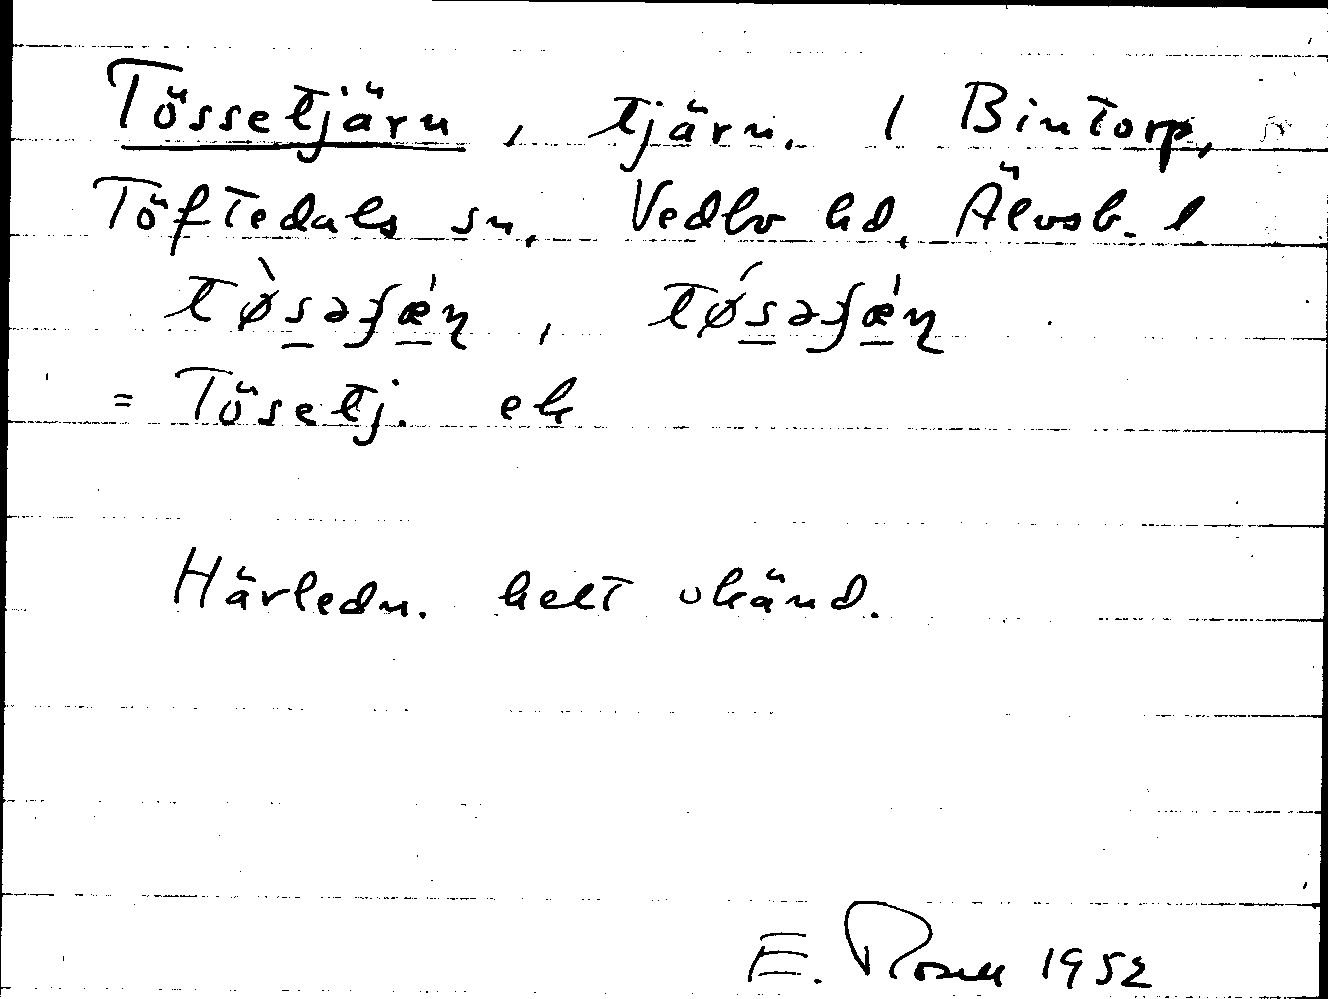 Tössetjärn, tjärn. / Bintorp,
Töftedals sn, Vedbo hd, Älvsb. l.
tø̀səʃǽɳ, tǿsəʃǽɳ
= Tösetj. ek
Härledn. helt okänd.
E. Rosell 1952